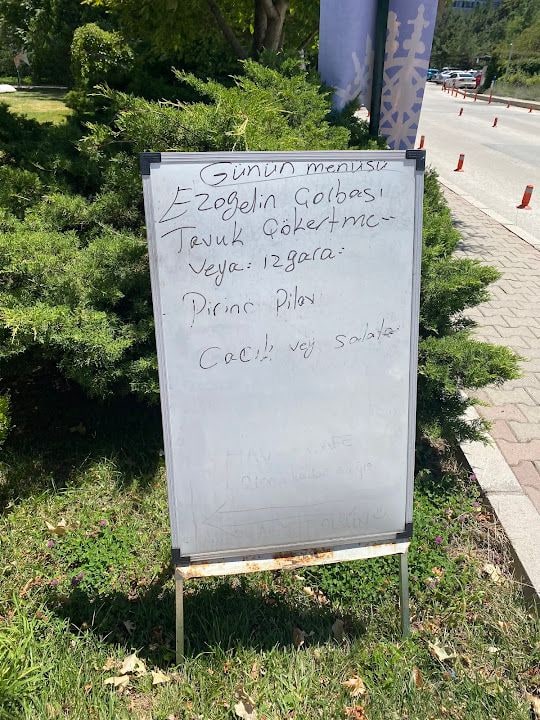 Günün menüsü
Ezogelin Çolbası
Tavuk Çökertme
veya: ızgara:
Pirinc Pilav
Cacık vey salata